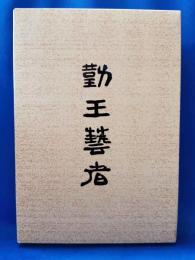 勤王藝者